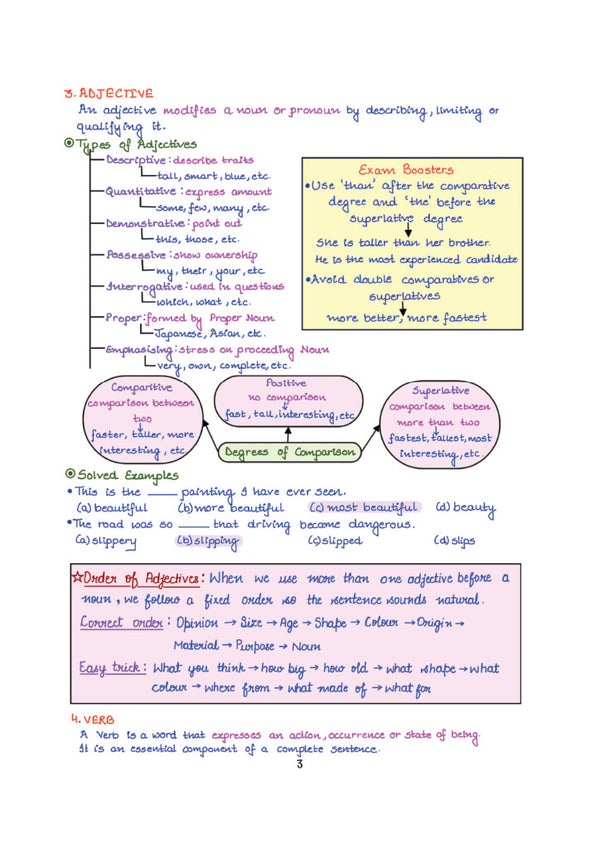 3. ADJECTIVE
An adjective modifies a noun or pronoun by describing, limiting or
qualifying it.
Types of Adjectives
Descriptive : describe traits
tall, smart, blue, etc.
Quantitative : express amount
some, few, many, etc.
Demonstrative : point out
this, those, etc.
Possessive : show ownership
my, their, your, etc
Interrogative : used in questions
which, what, etc.
Proper : formed by Proper Noun
Japanese, Asian, etc.
Emphasising : stress on proceeding Noun
very, own, complete, etc.
Exam Boosters
• Use 'than' after the comparative
degree and 'the' before the
superlative degree
She is taller than her brother.
He is the most experienced candidate
• Avoid double comparatives or
superlatives
more better, more fastest
Comparitive
comparison between
two
faster, taller, more
interesting, etc
Positive
no comparison
fast, tall, interesting, etc
Superlative
comparison between
more than two
fastest, tallest, most
interesting, etc.
Degrees of Comparison
Solved Examples
• This is the ____ painting I have ever seen.
(a) beautiful (b) more beautiful (c) most beautiful (d) beauty
• The road was so ____ that driving become dangerous.
(a) slippery (b) slipping (c) slipped (d) slips
☆Order of Adjectives: When we use more than one adjective before a
noun, we follow a fixed order so the sentence sounds natural.
Correct order: Opinion → Size → Age → Shape → Colour → Origin →
Material → Purpose → Noun
Easy trick: What you think → how big → how old → what shape → what
colour → where from → what made of → what for
4. VERB
A Verb is a word that expresses an action, occurrence or state of being.
It is an essential component of a complete sentence.
3